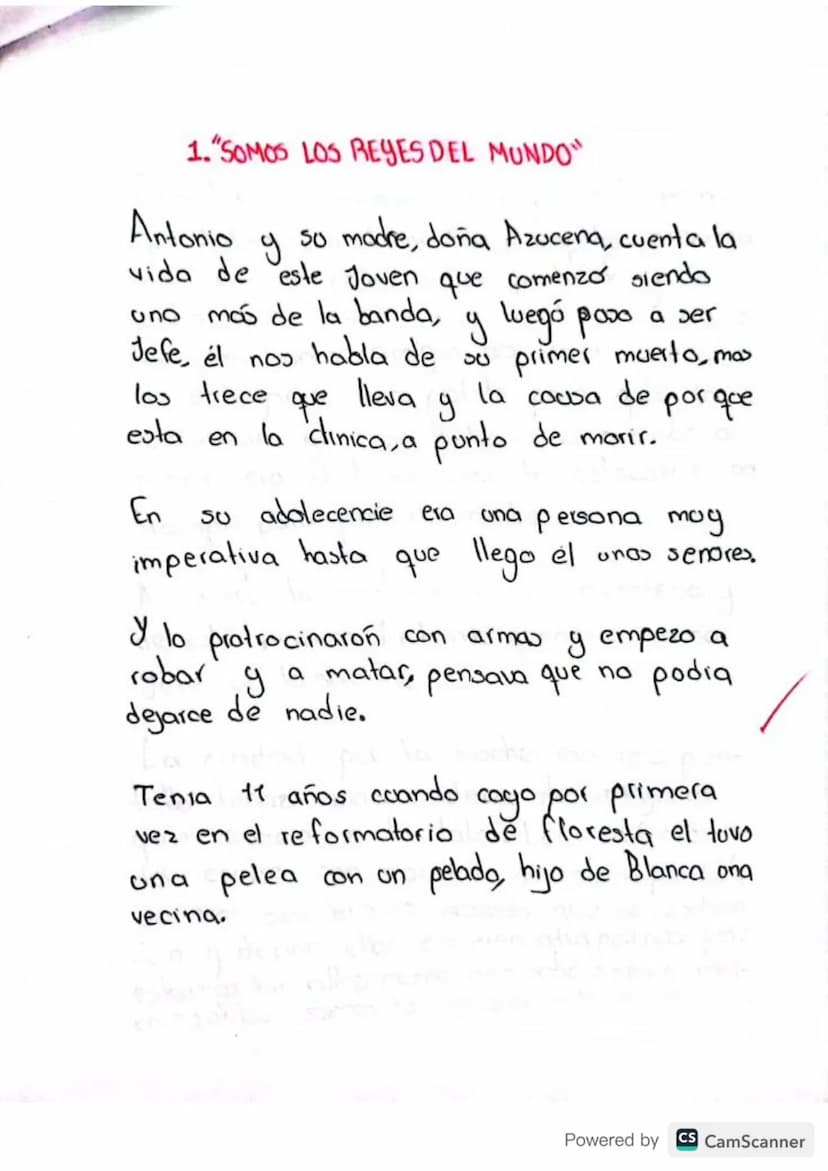 1. "SOMOS LOS REYES DEL MUNDO"
Antonio y su madre, doña Azucena, cuenta la
vida de este Joven que comenzó siendo
uno más de la banda, y luegó paso a ser
Jefe, él nos habla de su primer muerto, mas
los trece que lleva y la causa de por que
esta en la clinica, a punto de morir.
En su adolecencie era una persona muy
imperativa hasta que llego él unos senores.
Y lo protrocinarón con armas y empezo a
robar y a matar, pensava que no podia
dejarce de nadie.
Tenia 11 años cuando cayo por primera
vez en el reformatorio de floresta el tuvo
una pelea con un pelado, hijo de Blanca una
vecina.
Powered by CS CamScanner